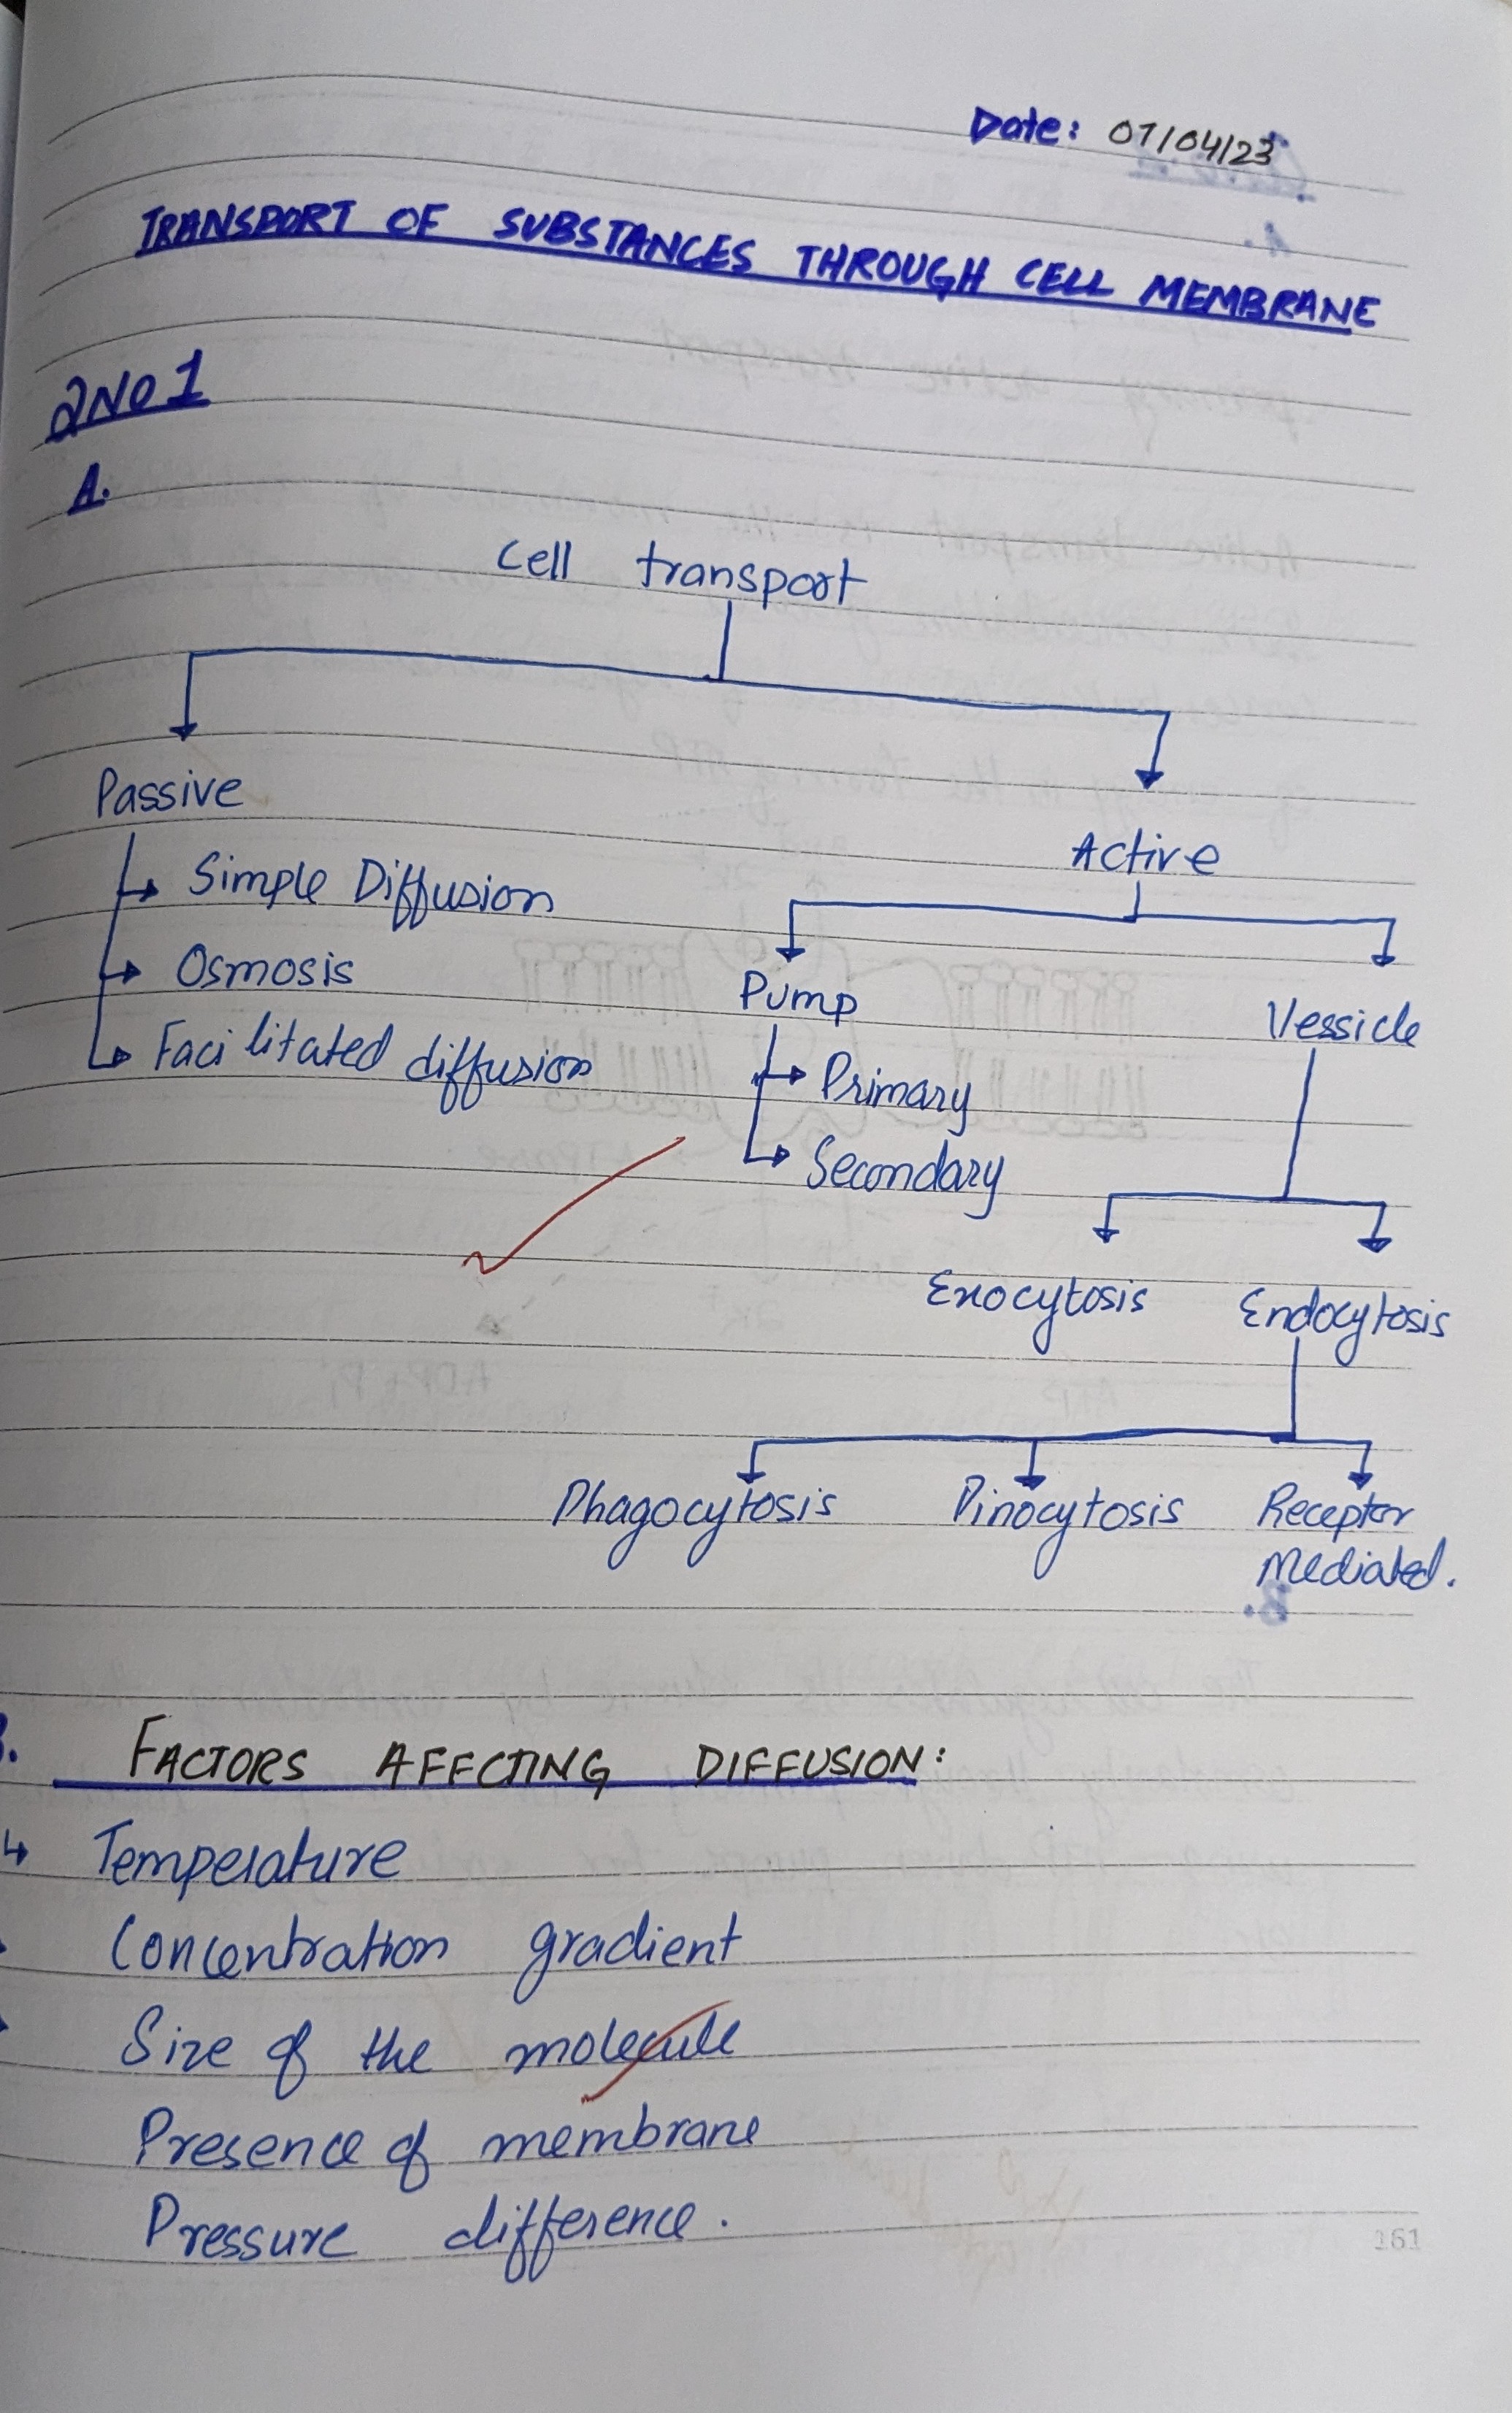 Date: 07/04/23
TRANSPORT OF SUBSTANCES THROUGH CELL MEMBRANE
QNO1
A.
Cell transport
Passive
Active
Simple Diffusion
Osmosis
Facilitated diffusion
Pump
Vessicle
Primary
Secondary
Exocytosis
Endocytosis
Phagocytosis
Pinocytosis
Receptor
Mediated.
B. FACTORS AFFECTING DIFFUSION:
↳ Temperature
Concentration gradient
Size of the molecule
Presence of membrane
Pressure difference.
161